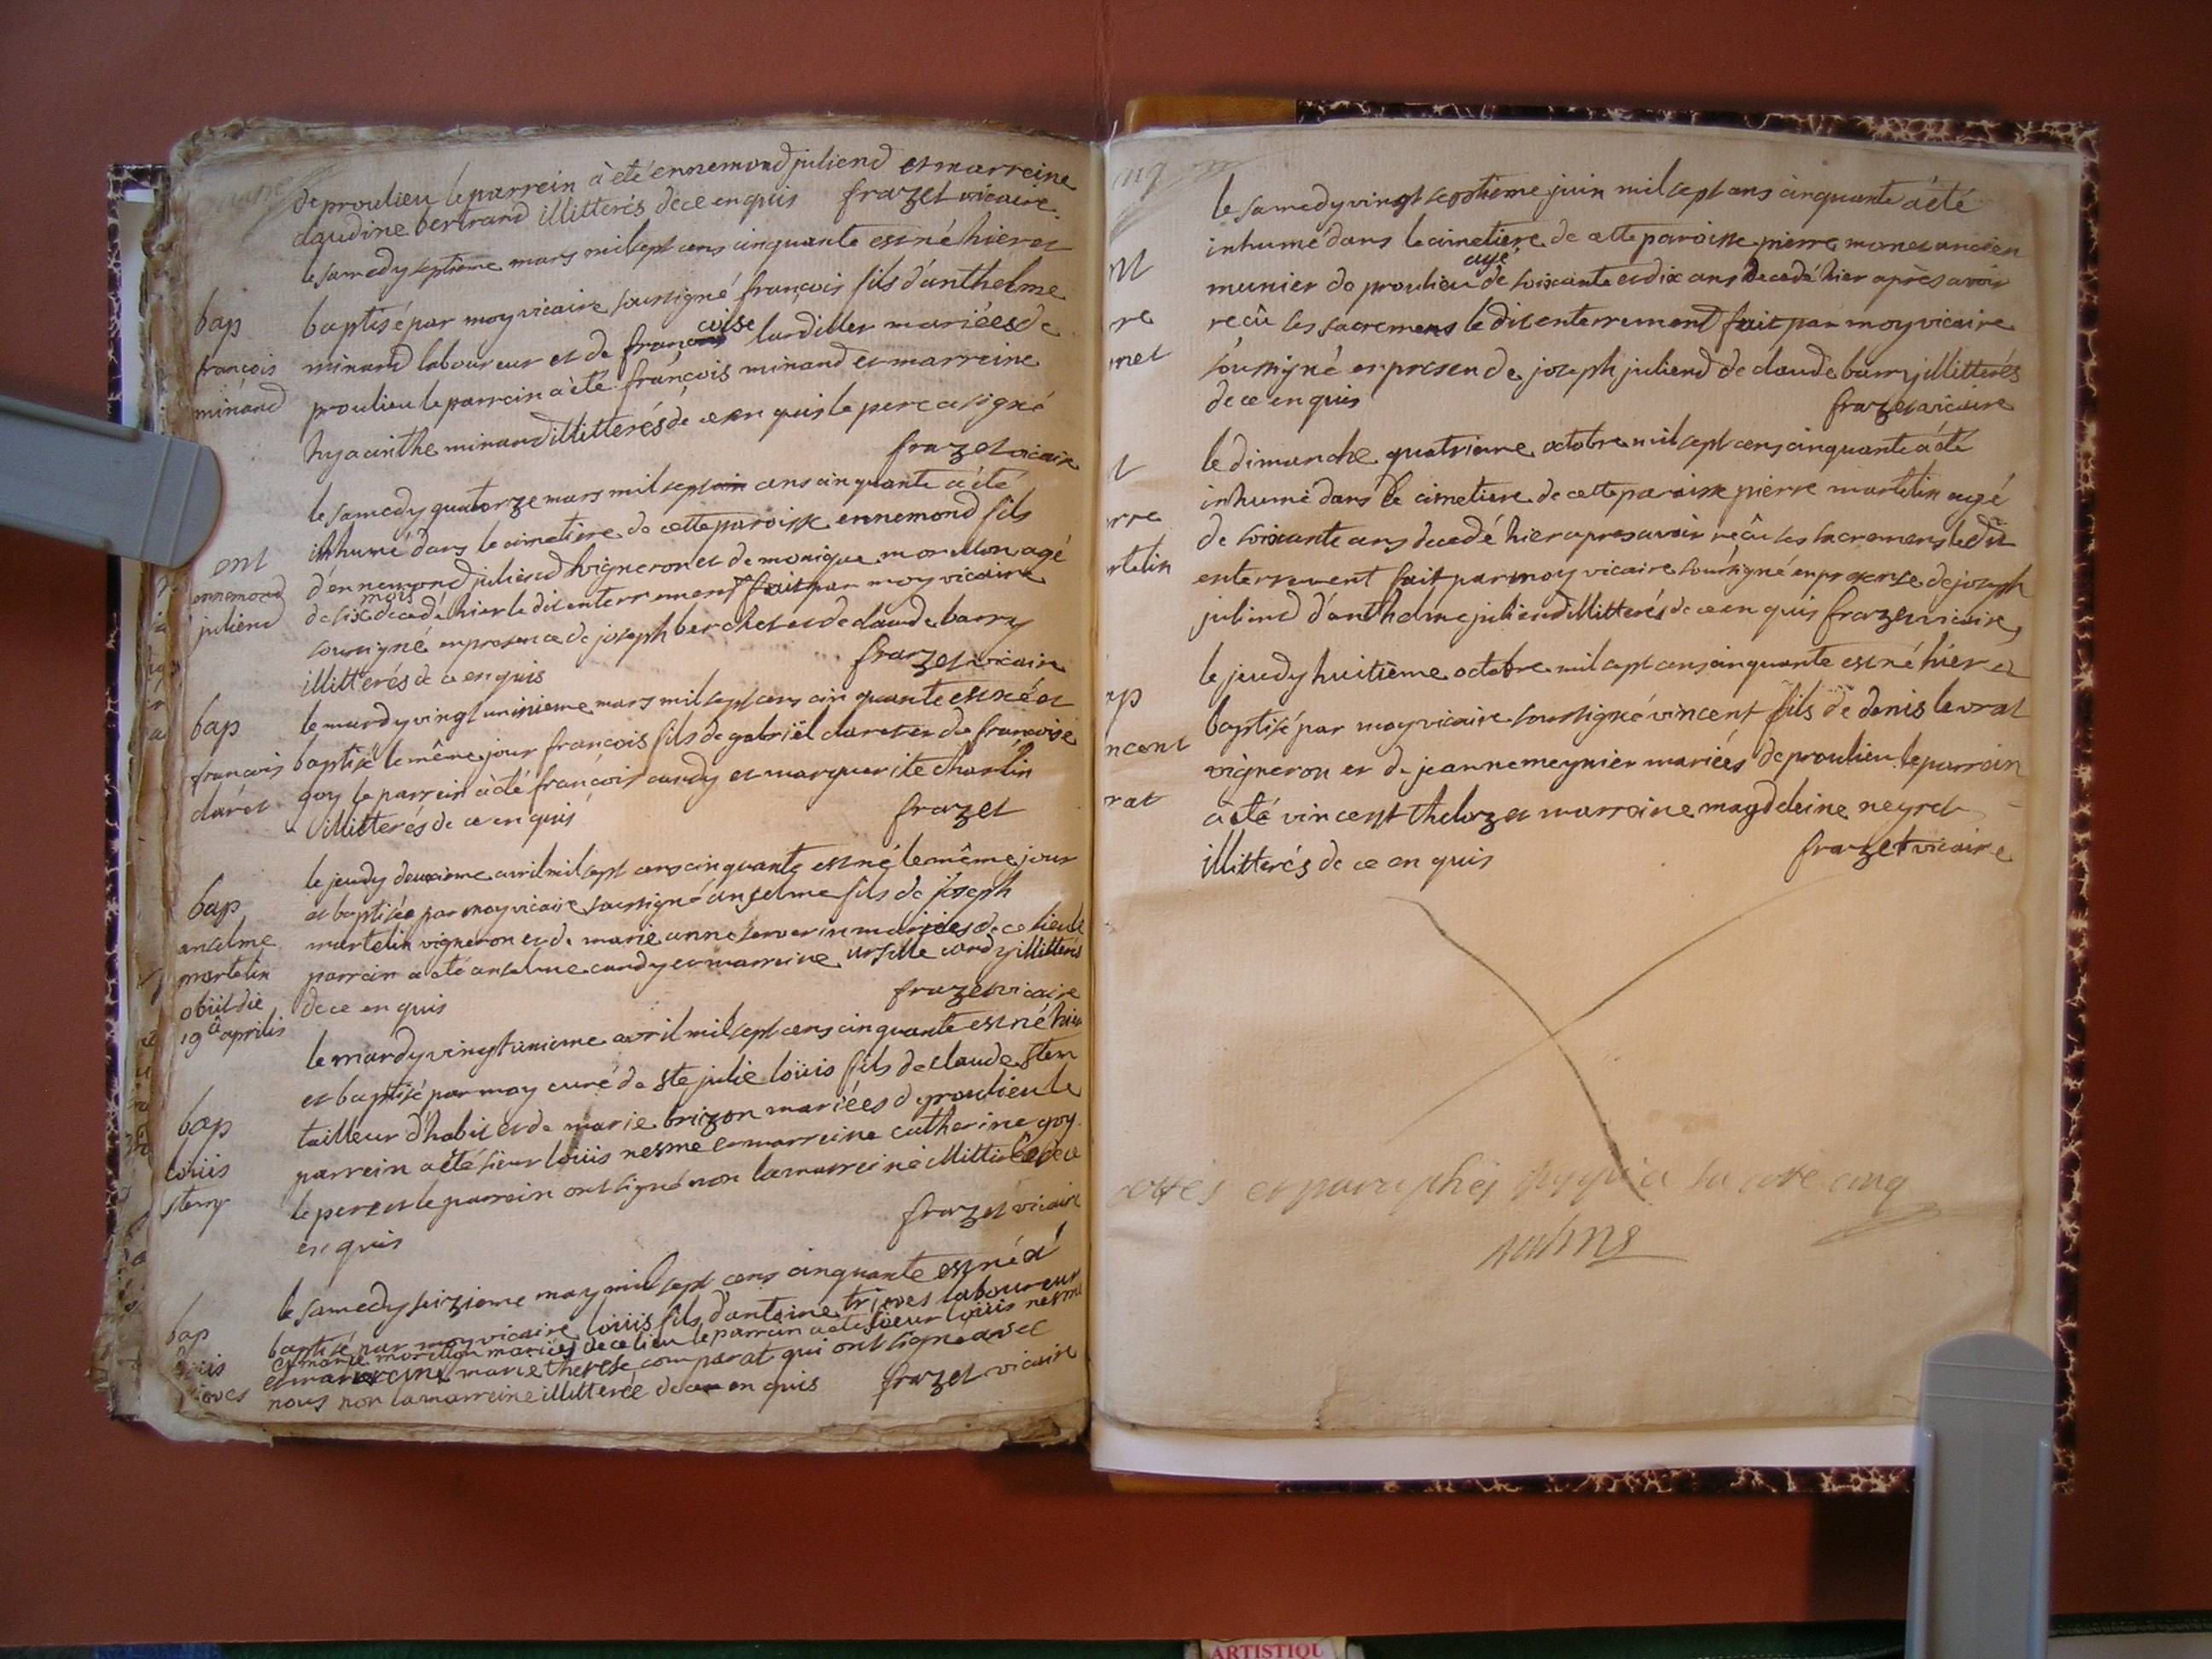 de proulieu le parrein à été ennemond juliend et marreine
claudine bertrand illitterés de ce enquis frazet vicaire
le samedy septieme mars mil sept cens cinquante est né hier et
bap baptisé par moy vicaire soussigné françois fils d'anthelme
françois minand laboureur et de françoise lardillier mariées de
minand proulieu le parrein à été françois minand et marreine
hyacinthe minand illitterés de ce en quis le pere a signé
frazet vicaire
le samedy quatorze mars mil sept cens cinquante à été
inhumé dans le cimetiere de cette paroisse ennemond fils
ent d'ennemond juliend vigneron et de monique morellon agé
ennemond de six mois decedé hier le dit enterrement fait par moy vicaire
juliend soussigné en presence de joseph berchet et de claude barry
illitterés de ce enquis frazet vicaire
bap le mardy vingt unieme mars mil sept cens cinquante est né et
françois baptisé le même jour françois fils de gabriël claret et de françoise
claret goy le parrein à été françois candy et marguerite charlin
illitterés de ce en quis frazet
le jeudy deuxieme avril mil sept cens cinquante est né le même jour
bap et baptisée par moy vicaire soussigné anselme fils de joseph
anselme martelin vigneron et de marie anne serverin mariées de ce lieu le
martelin parrein a été anselme candy et marreine ursulle candy illitterés
obiit die de ce en quis frazet vicaire
19â aprilis
le mardy vingt unieme avril mil sept cens cinquante est né hier
et baptisé par moy curé de ste julie loüis fils de claude stern
bap tailleur d'habit et de marie brizon mariées de proulieu le
loüis parrein a été sieur loüis nesme et marreine catherine goy
stern le pere et le parrein ont signé non la marreine illitterée de ce
en quis frazet vicaire
le samedy seizieme may mil sept cens cinquante est né et
bap baptisé par moy vicaire loüis fils d'antoine trieves laboureur
et marie morellon mariées de ce lieu le parrein a été sieur loüis nesme
et marreine marie therese comparat qui ont signé avec
nous non la marreine illitterée de ce en quis frazet vicaire
le samedy vingt septieme juin mil sept cens cinquante à été
inhumé dans le cimetiere de cette paroisse pierre monet ancien
munier de proulieu agé de soixante et dix ans decedé hier après avoir
reçû les sacremens le dit enterrement fait par moy vicaire
soussigné en presen de joseph juliend de claude barry illitterés
de ce en quis frazet vicaire
le dimanche quatrieme octobre mil sept cens cinquante à été
inhumé dans le cimetiere de cette paroisse pierre martelin agé
de soixante ans decedé hier apres avoir reçû les sacremens le dit
enterrement fait par moy vicaire soussigné en presense de joseph
juliend d'anthelme juliend illitterés de ce en quis frazet vicaire
le jeudy huitième octobre mil sept cens cinquante est né hier et
baptisé par moy vicaire soussigné vincent fils de denis levrat
vigneron et de jeanne meynier mariées de proulieu le parrein
à été vincent theloz et marreine magdeleine neyret
illitterés de ce en quis frazet vicaire
cottes et paraphés
ARTISTIQU